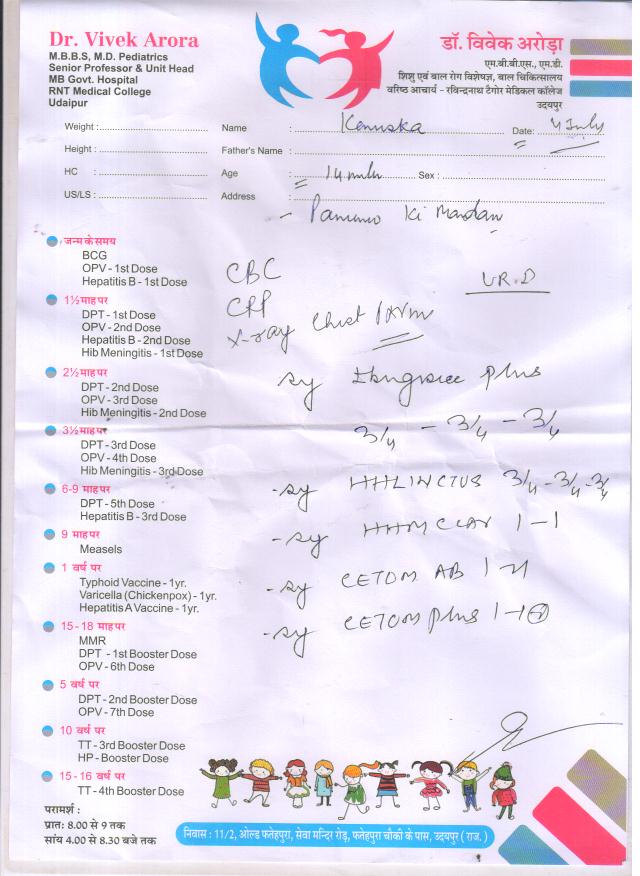 Dr. Vivek Arora
M.B.B.S, M.D. Pediatrics
Senior Professor & Unit Head
MB Govt. Hospital
RNT Medical College
Udaipur
डॉ. विवेक अरोड़ा
एम.बी.बी.एस., एम.डी.
शिशु एवं बाल रोग विशेषज्ञ, बाल चिकित्सालय
वरिष्ठ आचार्य - रविन्द्रनाथ टैगोर मेडिकल कॉलेज
उदयपुर
Weight : Name : Date: 4 July
Height : Father's Name :
HC : Age : 14 Sex :
US/LS : Address : Ki
जन्म के समय
BCG
OPV - 1st Dose
Hepatitis B - 1st Dose
CBC
1½ माह पर
DPT - 1st Dose
OPV - 2nd Dose
Hepatitis B - 2nd Dose
Hib Meningitis - 1st Dose
X-ray Chest
2½ माह पर
DPT - 2nd Dose
OPV - 3rd Dose
Hib Meningitis - 2nd Dose
sy plus
3/4 - 3/4 - 3/4
3½ माह पर
DPT - 3rd Dose
OPV - 4th Dose
Hib Meningitis - 3rd Dose
6-9 माह पर
DPT - 5th Dose
Hepatitis B - 3rd Dose
- sy HHLINCTUS 3/4 - 3/4 - 3/4
9 माह पर
Measels
- sy HHMCLAV 1 - 1
1 वर्ष पर
Typhoid Vaccine - 1yr.
Varicella (Chickenpox) - 1yr.
Hepatitis A Vaccine - 1yr.
- sy AB
15 - 18 माह पर
MMR
DPT - 1st Booster Dose
OPV - 6th Dose
- sy plus
5 वर्ष पर
DPT - 2nd Booster Dose
OPV - 7th Dose
10 वर्ष पर
TT - 3rd Booster Dose
HP - Booster Dose
15 - 16 वर्ष पर
TT - 4th Booster Dose
परामर्श :
प्रातः 8.00 से 9 तक
सांय 4.00 से 8.30 बजे तक
निवास : 11/2, ओल्ड फतेहपुरा, सेवा मन्दिर रोड़, फतेहपुरा चौकी के पास, उदयपुर ( राज. )